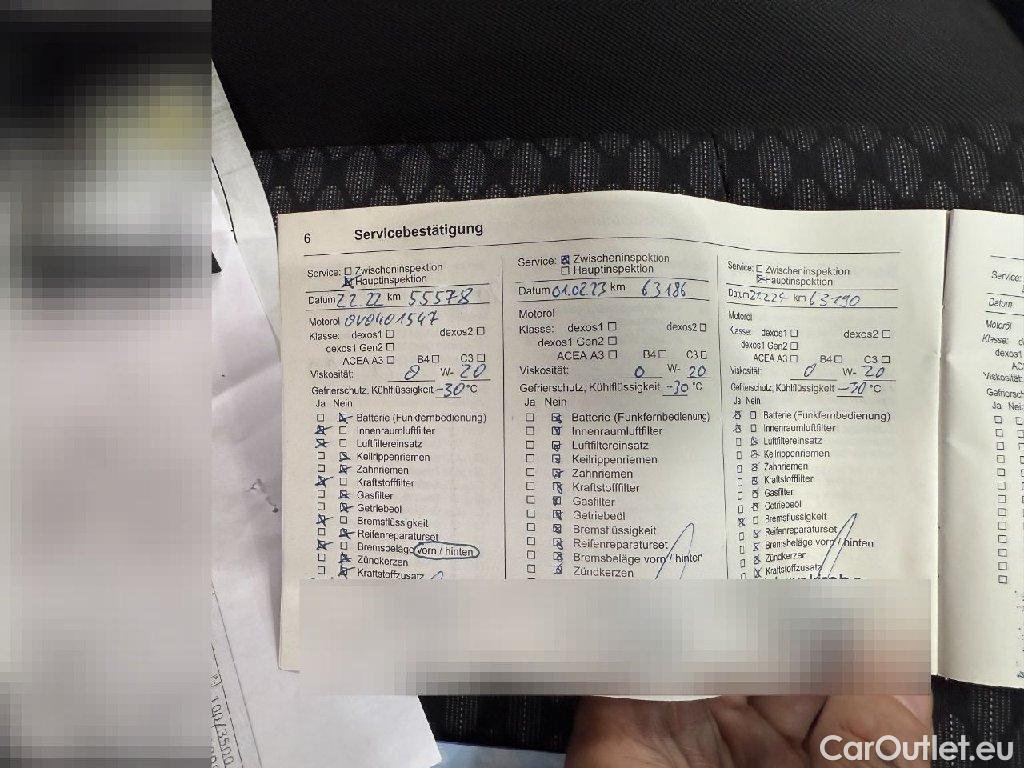 6 Servicebestätigung
Service: Zwischeninspektion
Hauptinspektion
Datum 2.2.22 km 55578
Motoröl 0V0401547
Klasse: dexos1 dexos2
dexos1 Gen2
ACEA A3 B4 C3
Viskosität: 0 W- 20
Gefrierschutz, Kühlflüssigkeit -30 °C
Ja Nein
Batterie (Funkfernbedienung)
Innenraumluftfilter
Luftfiltereinsatz
Keilrippenriemen
Zahnriemen
Kraftstofffilter
Gasfilter
Getriebeöl
Bremsflüssigkeit
Reifenreparaturset
Bremsbeläge vorn / hinten
Zündkerzen
Kraftstoffzusatz
Service: Zwischeninspektion
Hauptinspektion
Datum 01.02.23 km 63186
Motoröl
Klasse: dexos1 dexos2
dexos1 Gen2
ACEA A3 B4 C3
Viskosität: 0 W- 20
Gefrierschutz, Kühlflüssigkeit -30 °C
Ja Nein
Batterie (Funkfernbedienung)
Innenraumluftfilter
Luftfiltereinsatz
Keilrippenriemen
Zahnriemen
Kraftstofffilter
Gasfilter
Getriebeöl
Bremsflüssigkeit
Reifenreparaturset
Bremsbeläge vorn / hinten
Zündkerzen
Service: Zwischeninspektion
Hauptinspektion
Datum km 63190
Motoröl
Klasse: dexos1 dexos2
dexos1 Gen2
ACEA A3 B4 C3
Viskosität: 0 W- 20
Gefrierschutz, Kühlflüssigkeit °C
Ja Nein
Batterie (Funkfernbedienung)
Innenraumluftfilter
Luftfiltereinsatz
Keilrippenriemen
Zahnriemen
Kraftstofffilter
Gasfilter
Getriebeöl
Bremsflüssigkeit
Reifenreparaturset
Bremsbeläge vorn / hinten
Zündkerzen
Kraftstoffzusatz
Service:
Datum
Motoröl
Klasse:
Viskosität:
Ja Nein
CarOutlet.eu